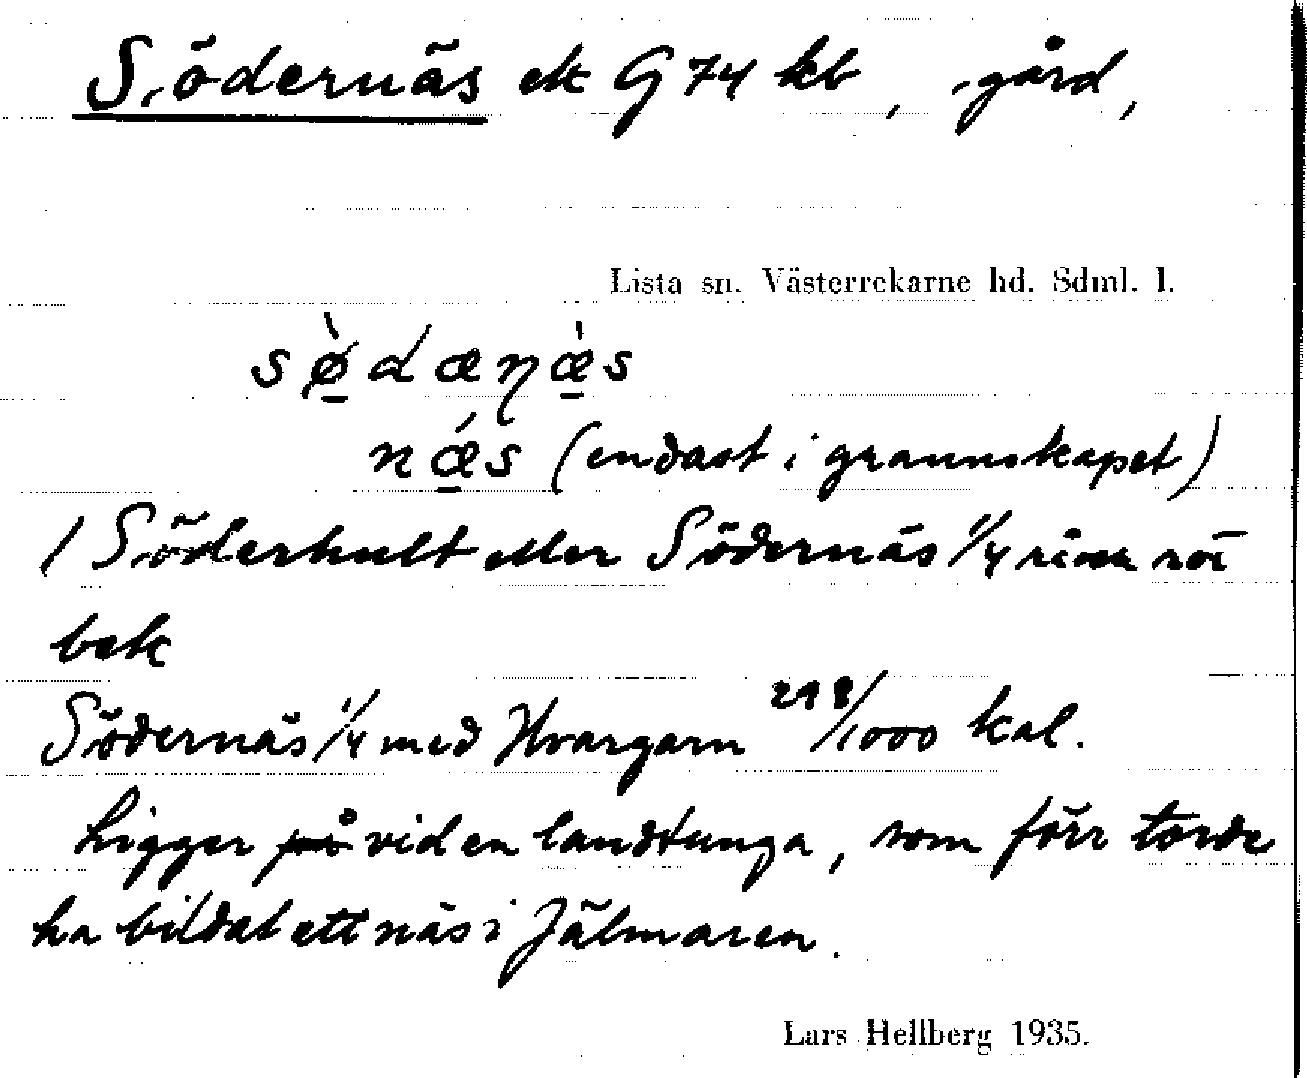 Södernäs ek G 74 kb, gård,
Lista sn. Västerrekarne hd. Sdml. l.
sø̀dæɳæ̀s
nǽs (endast i grannskapet)
/ Söderhult eller Södernäs 1/4
bek
Södernäs 1/4 med Hvargarn 298/1000 kal.
Ligger på vid en landtunga, som förr torde
ha bildat ett näs i Jälmaren.
Lars Hellberg 1935.